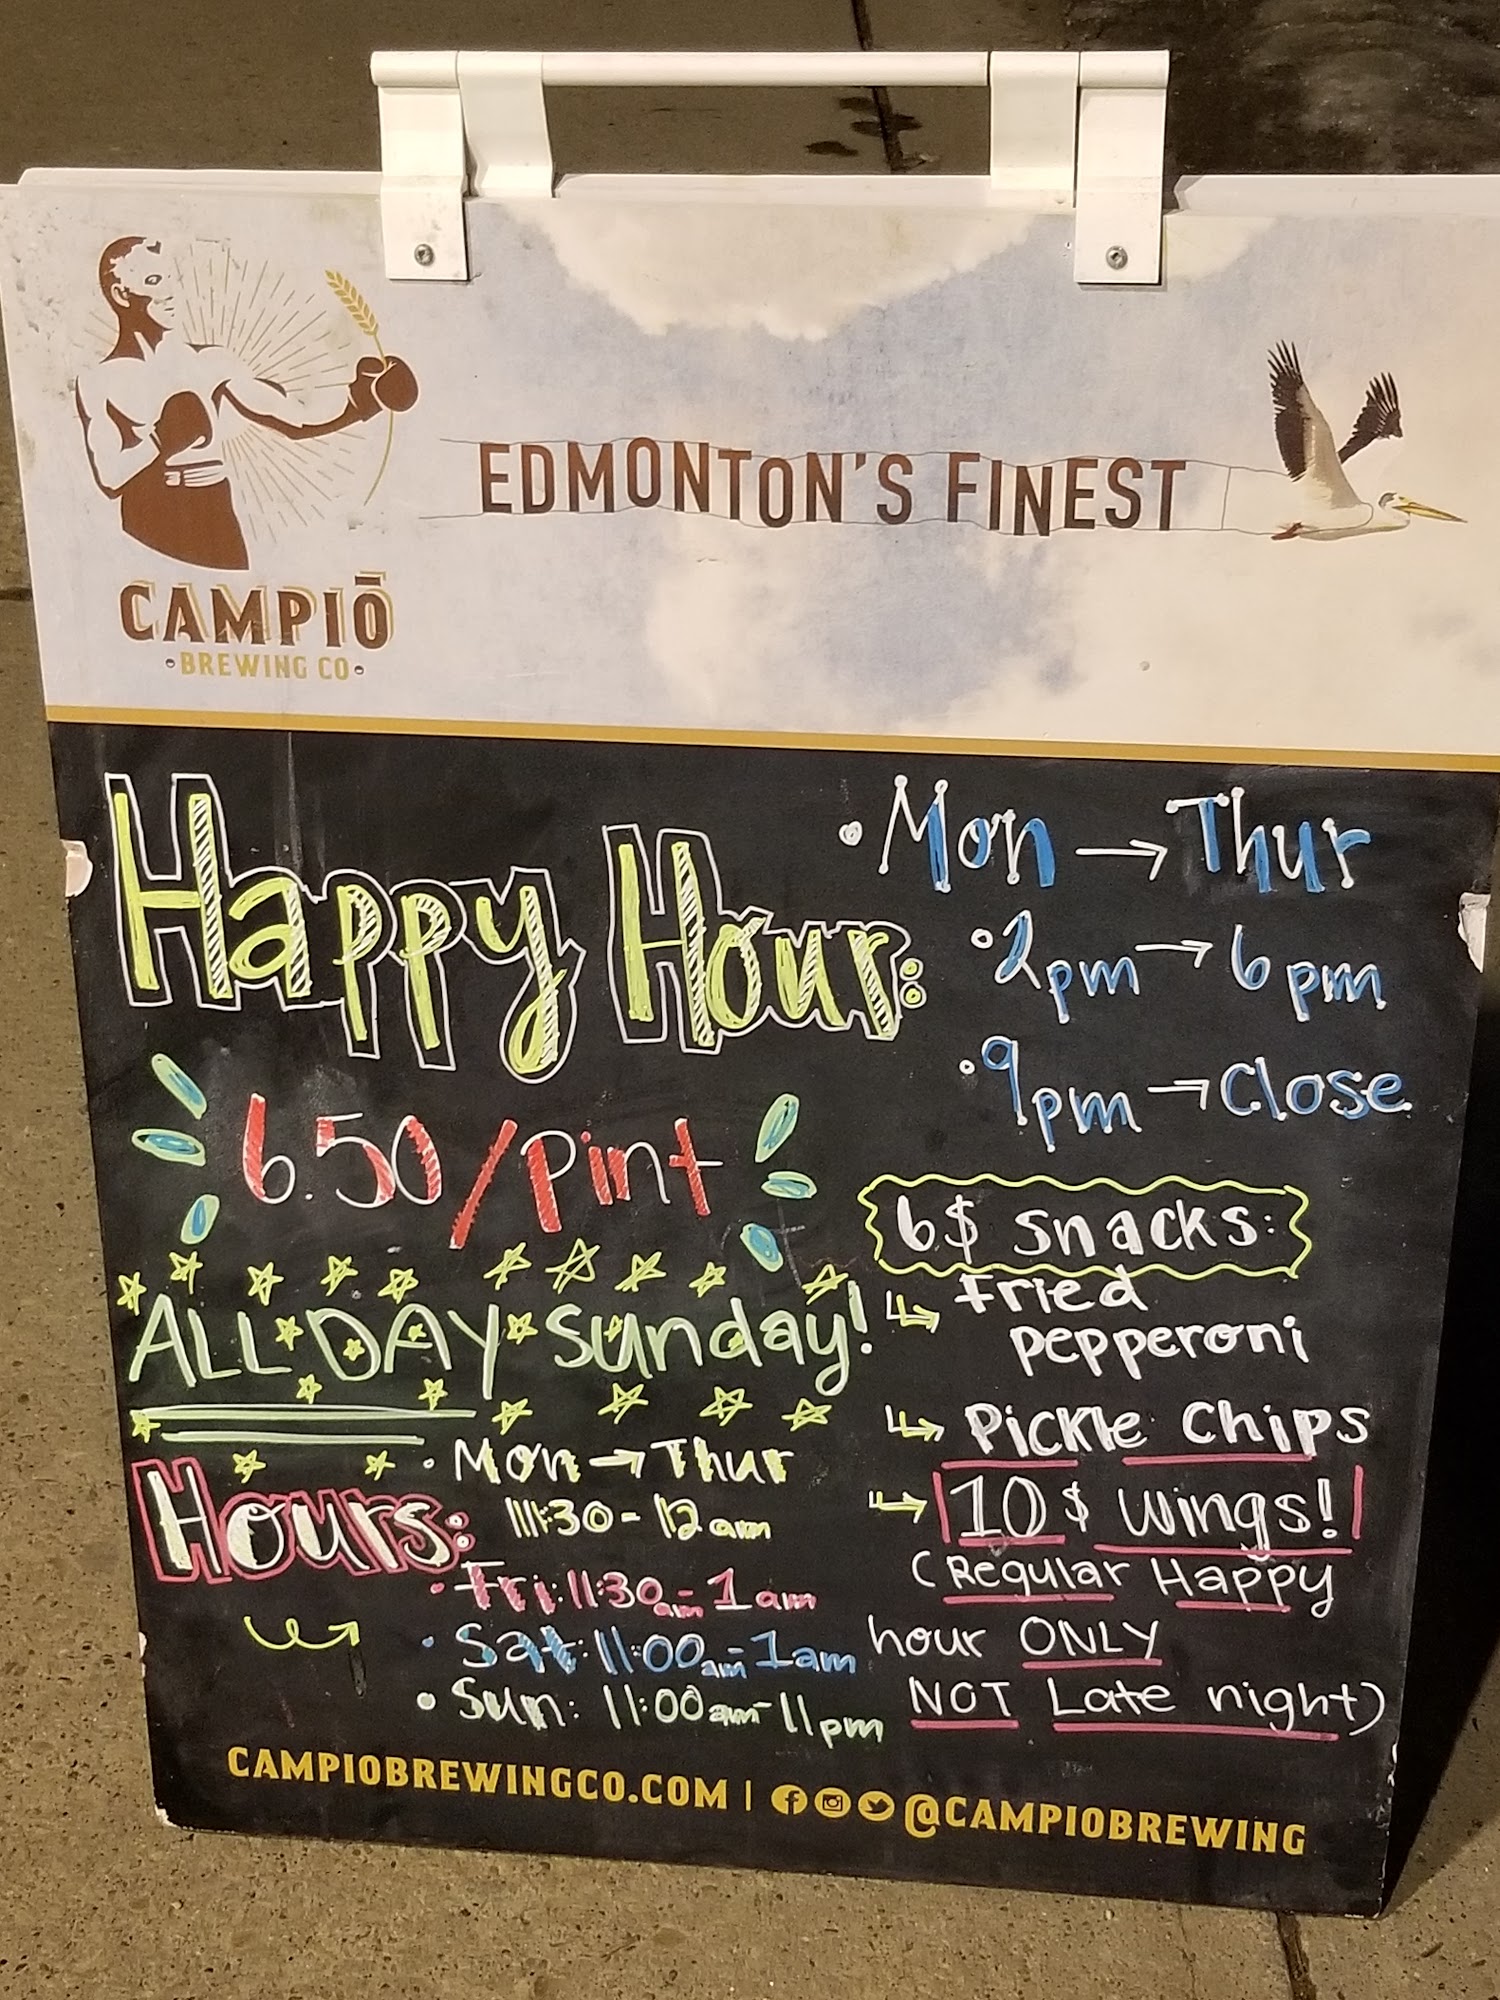 EDMONTON'S FINEST
CAMPIŌ
•BREWING CO•
Happy Hour:
• Mon → Thur
• 2pm → 6pm
• 9pm → Close
6.50/Pint
ALL DAY Sunday!
6$ Snacks:
↳ Fried
pepperoni
↳ Pickle Chips
→ 10$ Wings!
(Regular Happy
hour ONLY
NOT Late night)
Hours:
• Mon → Thur
11:30 - 12am
• Fri: 11:30am - 1am
• Sat: 11:00am - 1am
• Sun: 11:00am - 11pm
CAMPIOBREWINGCO.COM | @CAMPIOBREWING